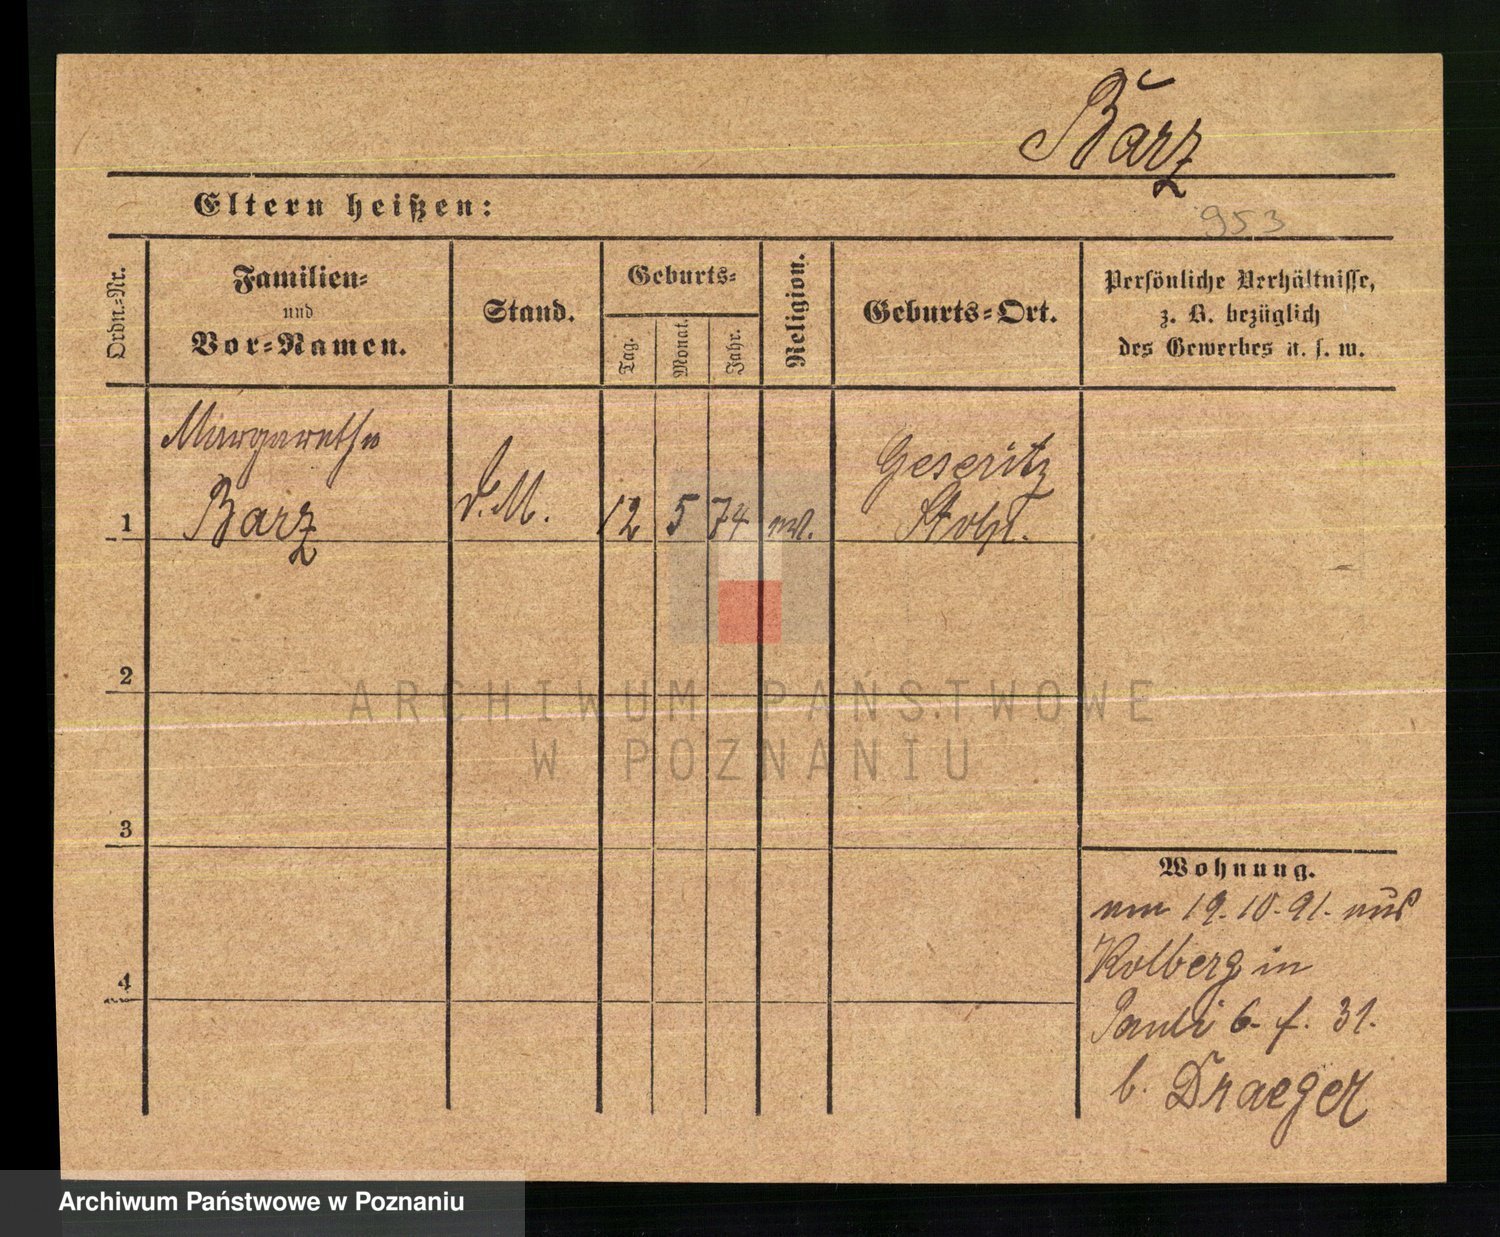 Barz
Eltern heißen:
953
Ordn.-Nr.
Familien-
und
Vor-Namen.
Stand.
Geburts-
Tag.
Monat.
Jahr.
Religion.
Geburts-Ort.
Persönliche Verhältnisse,
z. B. bezüglich
des Gewerbes u. s. w.
Margarethe
Barz
1
d. M.
12
5
74
ev.
Geseritz
Stolp.
2
3
4
Wohnung.
am 19.10.91. aus
Kolberg in
Pauli 6. f. 31.
b. Draeger
ARCHIWUM PAŃSTWOWE
W POZNANIU
Archiwum Państwowe w Poznaniu